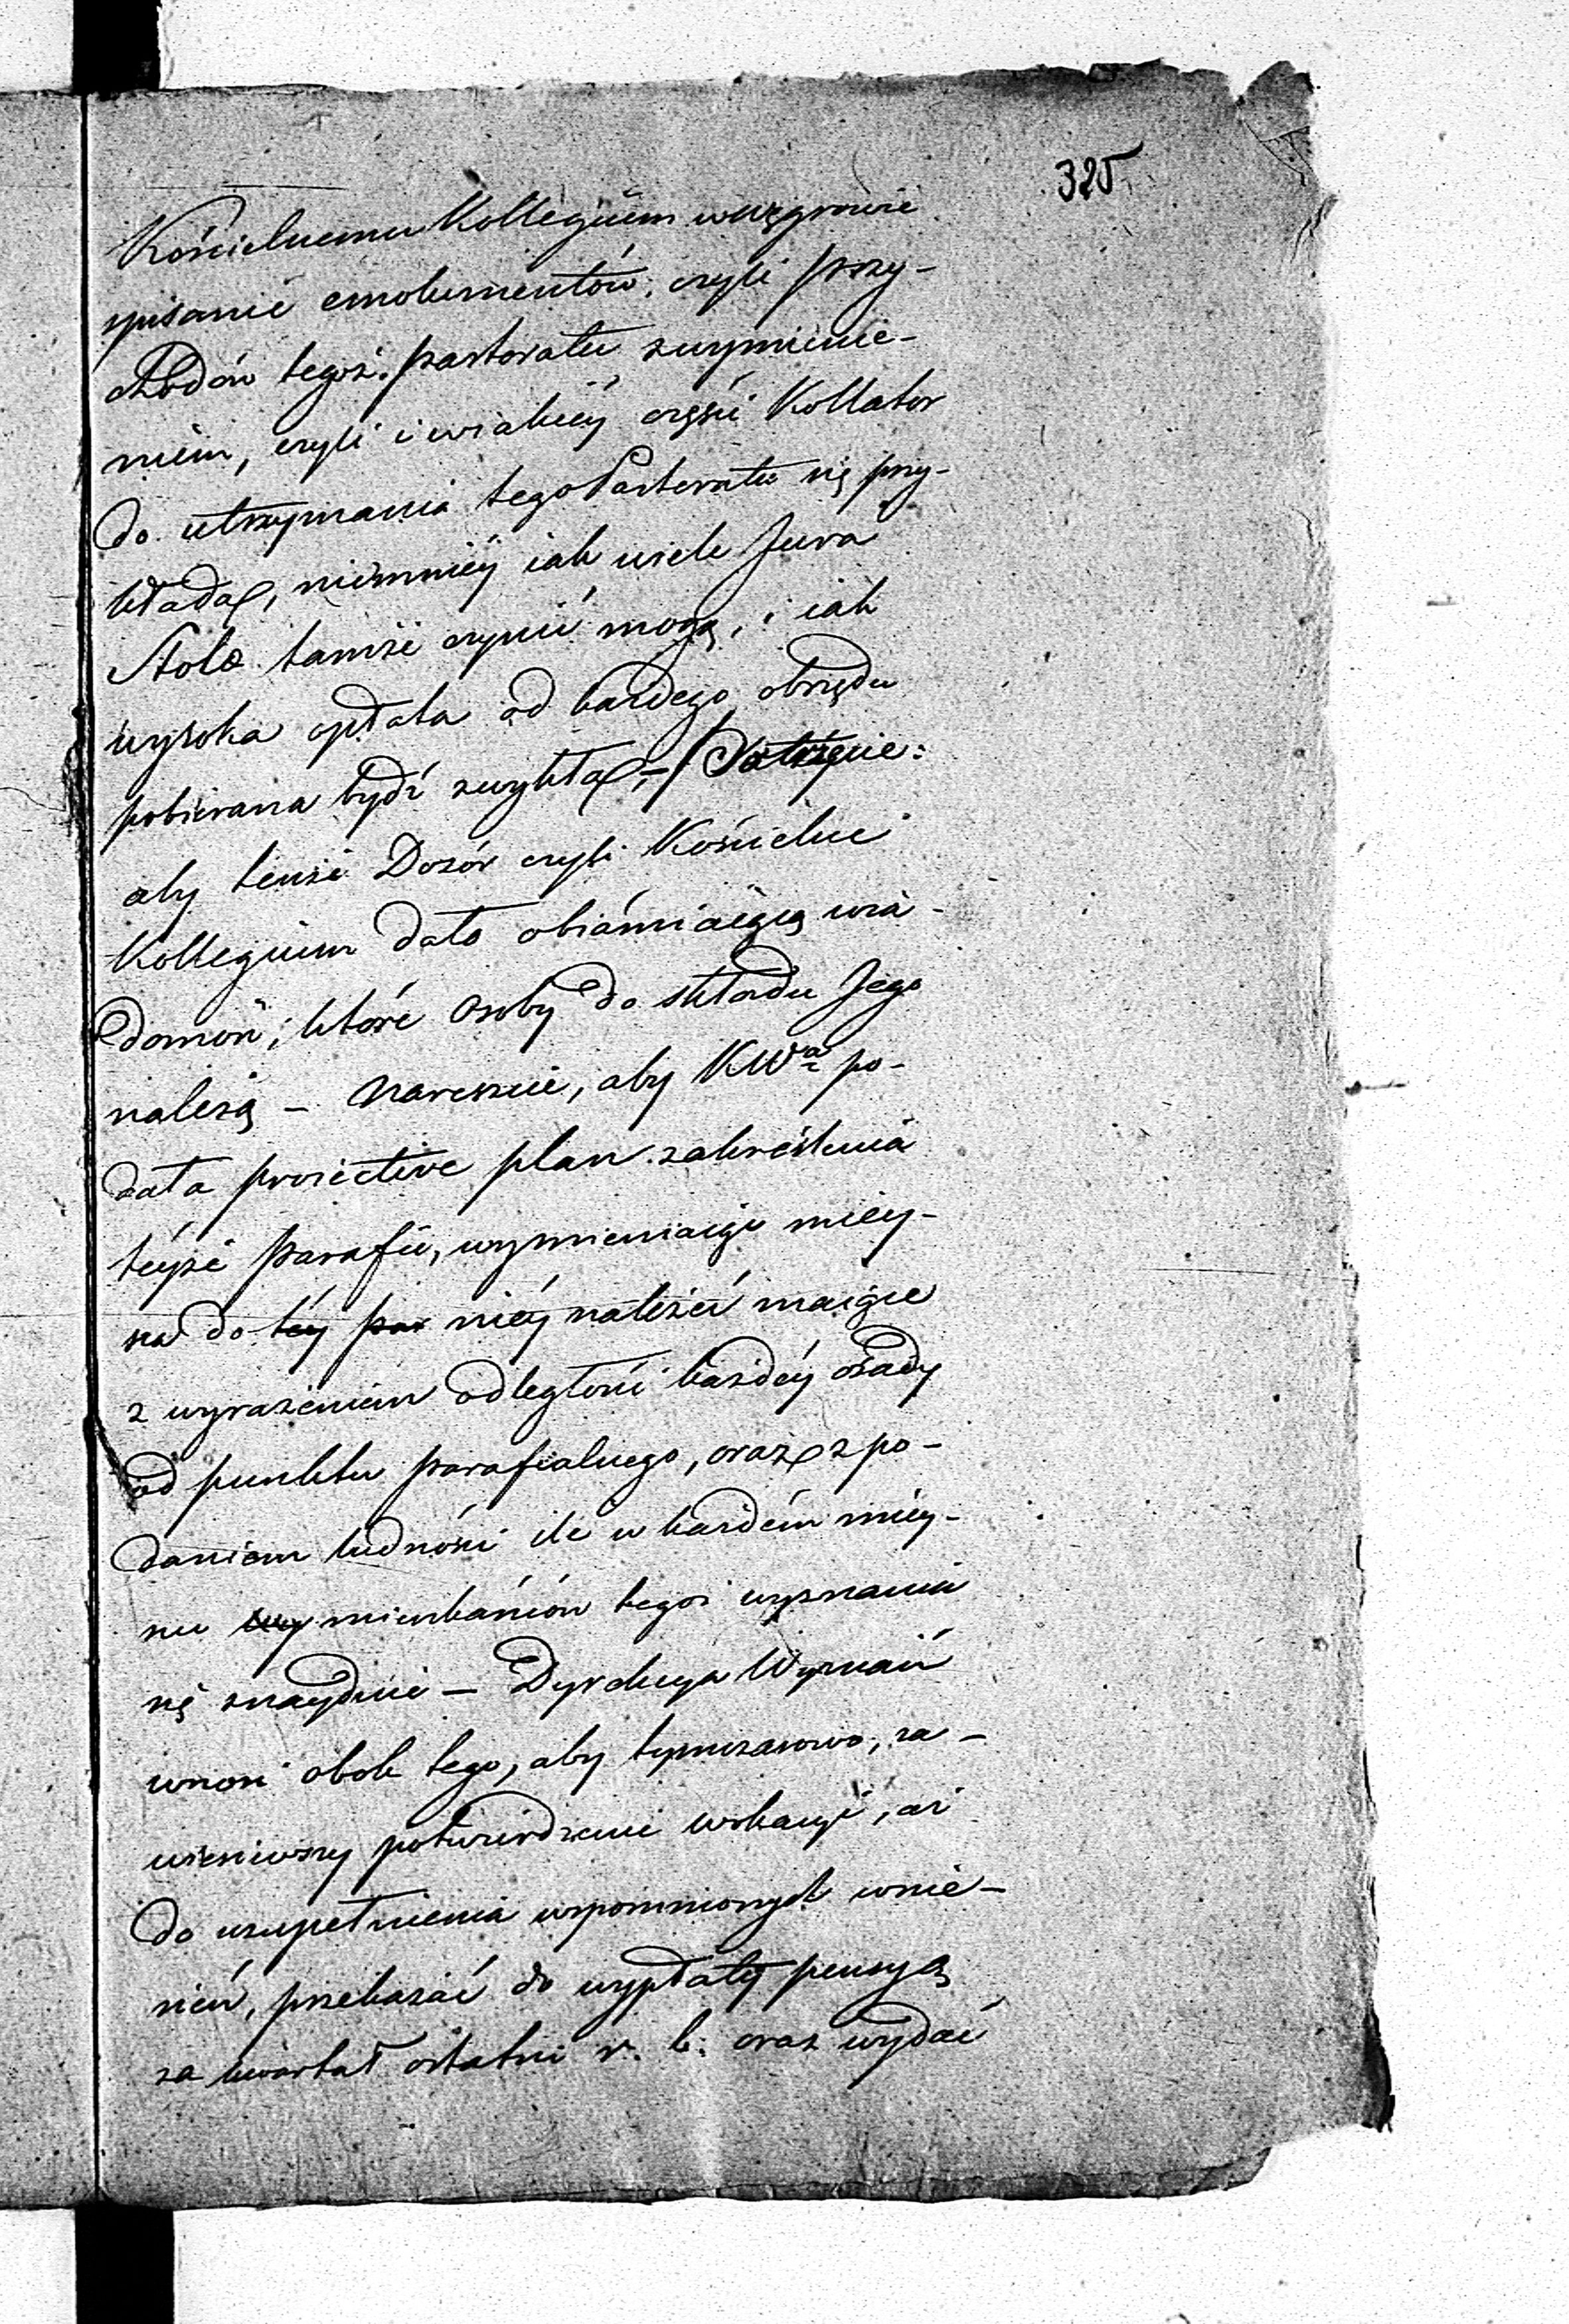 325
Kościelnemu Kollegium względnie
spisanie emolumentów, czyli przy-
chodów tegoż pastoratu z wymienie-
niem, czyli i w iakiéy części Kollator
do utrzymania tego Pastoratu się przy-
kłada, niemniéy iak wiele Jura
Stolæ tamże czynić mogą, i iak
wysoka opłata od każdego obrzędu
pobierana bydź zwykła, –
aby tenże Dozór czyli Kościelne
Kollegium dało obiaśniaiącą wia-
domość, które osoby do składu Jego
należą – nareszcie, aby KWa po-
dała proiective plan zakreślenia
téyże parafii, wymieniaiąc miey-
sca do téy par niéy należeć maiące
z wyrażeniem odległości każdéy osady
od punktu parafialnego, oraz z po-
daniem ludności ile w każdém miey-
scu mieszkańców tegoż wyznania
się znayduie – Dyrekcya Wyznań
wnosi obok tego, aby tymczasowo, za-
wiesiwszy potwierdzenie wokacyi, aż
do uzupełnienia wspomnionych wnie-
sień, przekazać do wypłaty pensyą
za kwartał ostatni r. b. oraz wydać